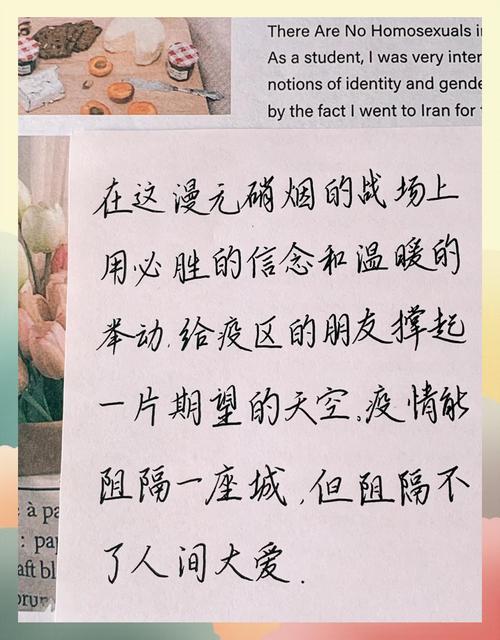 There Are No Homosexuals i
As a student, I was very inter
notions of identity and gende
by the fact I went to Iran for
在这漫元硝烟的战场上
用必胜的信念和温暖的
举动,给疫区的朋友撑起
一片期望的天空。疫情能
阻隔一座城,但阻隔不
了人间大爱.
à pa
: pap
aft bl